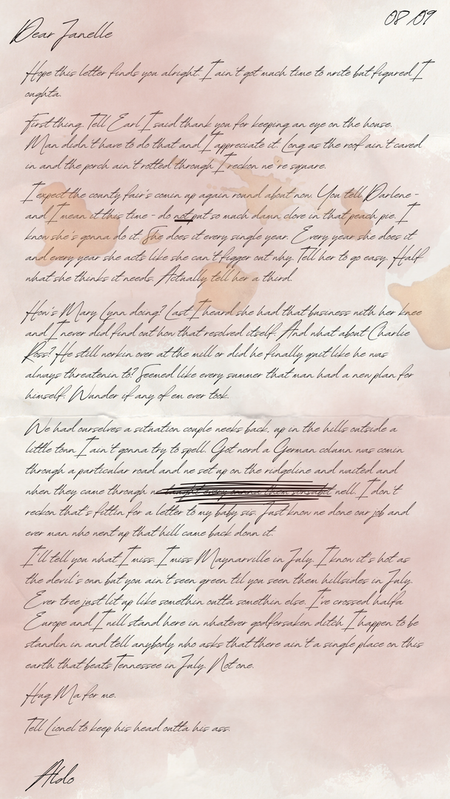 08/09
Dear Janelle
Hope this letter finds you alright. I ain't got much time to write but figured I
oughta.
First thing. Tell Earl I said thank you for keeping an eye on the house.
Man didn't have to do that and I appreciate it. Long as the roof ain't caved
in and the porch ain't rotted through I reckon we're square.
I expect the county fair's comin up again round about now. You tell Darlene -
and I mean it this time - do not put so much damn clove in that peach pie. I
know she's gonna do it. She does it every single year. Every year she does it
and every year she acts like she can't figger out why. Tell her to go easy. Half
what she thinks it needs. Actually tell her a third.
How's Mary Lynn doing? Last I heard she had that business with her knee
and I never did find out how that resolved itself. And what about Charlie
Ross? He still workin over at the mill or did he finally quit like he was
always threatenin to? Seemed like every summer that man had a new plan for
himself. Wonder if any of em ever took.
We had ourselves a situation couple weeks back, up in the hills outside a
little town I ain't gonna try to spell. Got word a German column was comin
through a particular road and we set up on the ridgeline and waited and
when they came through well. I don't
reckon that's fittin for a letter to my baby sis. Just know we done our job and
ever man who went up that hill came back down it.
I'll tell you what I miss. I miss Maynarville in July. I know it's hot as
the devil's own but you ain't seen green til you seen them hillsides in July.
Ever tree just lit up like somethin outta somethin else. I've crossed halfa
Europe and I will stand here in whatever godforsaken ditch I happen to be
standin in and tell anybody who asks that there ain't a single place on this
earth that beats Tennessee in July. Not one.
Hug Ma for me.
Tell Lionel to keep his head outta his ass.
Aldo